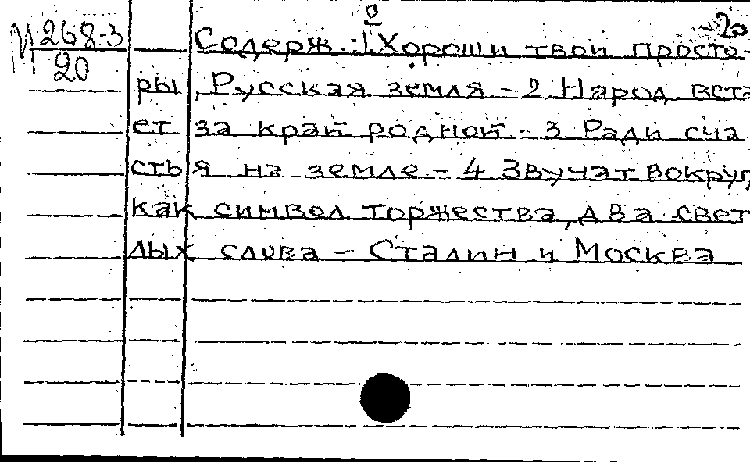 М 268-3
20
20
Содерж.: 1. Хороши твои просто-
ры, Русская земля - 2 Народ вста
ет за край родной - 3 Ради сча
стья на земле - 4 Звучат вокруг,
как символ торжества, два свет
лых слова - Сталин и Москва